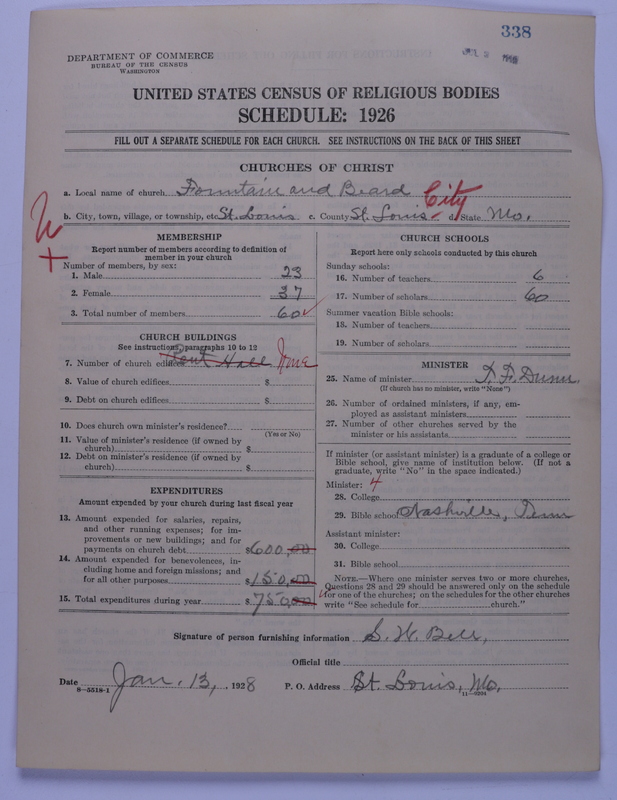 338
JUL 2
DEPARTMENT OF COMMERCE
BUREAU OF THE CENSUS
WASHINGTON
UNITED STATES CENSUS OF RELIGIOUS BODIES
SCHEDULE: 1926
FILL OUT A SEPARATE SCHEDULE FOR EACH CHURCH. SEE INSTRUCTIONS ON THE BACK OF THIS SHEET
CHURCHES OF CHRIST
a. Local name of church Fountain and Beard
b. City, town, village, or township, etc. St. Louis c. County St. Louis City d. State Mo.
MEMBERSHIP
Report number of members according to definition of
member in your church
Number of members, by sex:
1. Male 23
2. Female 37
3. Total number of members 60
CHURCH BUILDINGS
See instructions, paragraphs 10 to 12
7. Number of church edifices Rent Hall None
8. Value of church edifices $
9. Debt on church edifices $
10. Does church own minister's residence?
(Yes or No)
11. Value of minister's residence (if owned by
church) $
12. Debt on minister's residence (if owned by
church) $
EXPENDITURES
Amount expended by your church during last fiscal year
13. Amount expended for salaries, repairs,
and other running expenses; for im-
provements or new buildings; and for
payments on church debt $600.00
14. Amount expended for benevolences, in-
cluding home and foreign missions; and
for all other purposes $150.00
15. Total expenditures during year $750.00
CHURCH SCHOOLS
Report here only schools conducted by this church
Sunday schools:
16. Number of teachers 6
17. Number of scholars 60
Summer vacation Bible schools:
18. Number of teachers
19. Number of scholars
MINISTER
25. Name of minister Dunn
(If church has no minister, write "None")
26. Number of ordained ministers, if any, em-
ployed as assistant ministers
27. Number of other churches served by the
minister or his assistants
If minister (or assistant minister) is a graduate of a college or
Bible school, give name of institution below. (If not a
graduate, write "No" in the space indicated.)
Minister: 4
28. College
29. Bible school Nashville, Tenn
Assistant minister:
30. College
31. Bible school
NOTE.—Where one minister serves two or more churches,
Questions 28 and 29 should be answered only on the schedule
for one of the churches; on the schedules for the other churches
write "See schedule for church."
Signature of person furnishing information S. W. Bell,
Official title
Date Jan. 13, 1928 P. O. Address St. Louis, Mo.
8—5518-1
11—9294